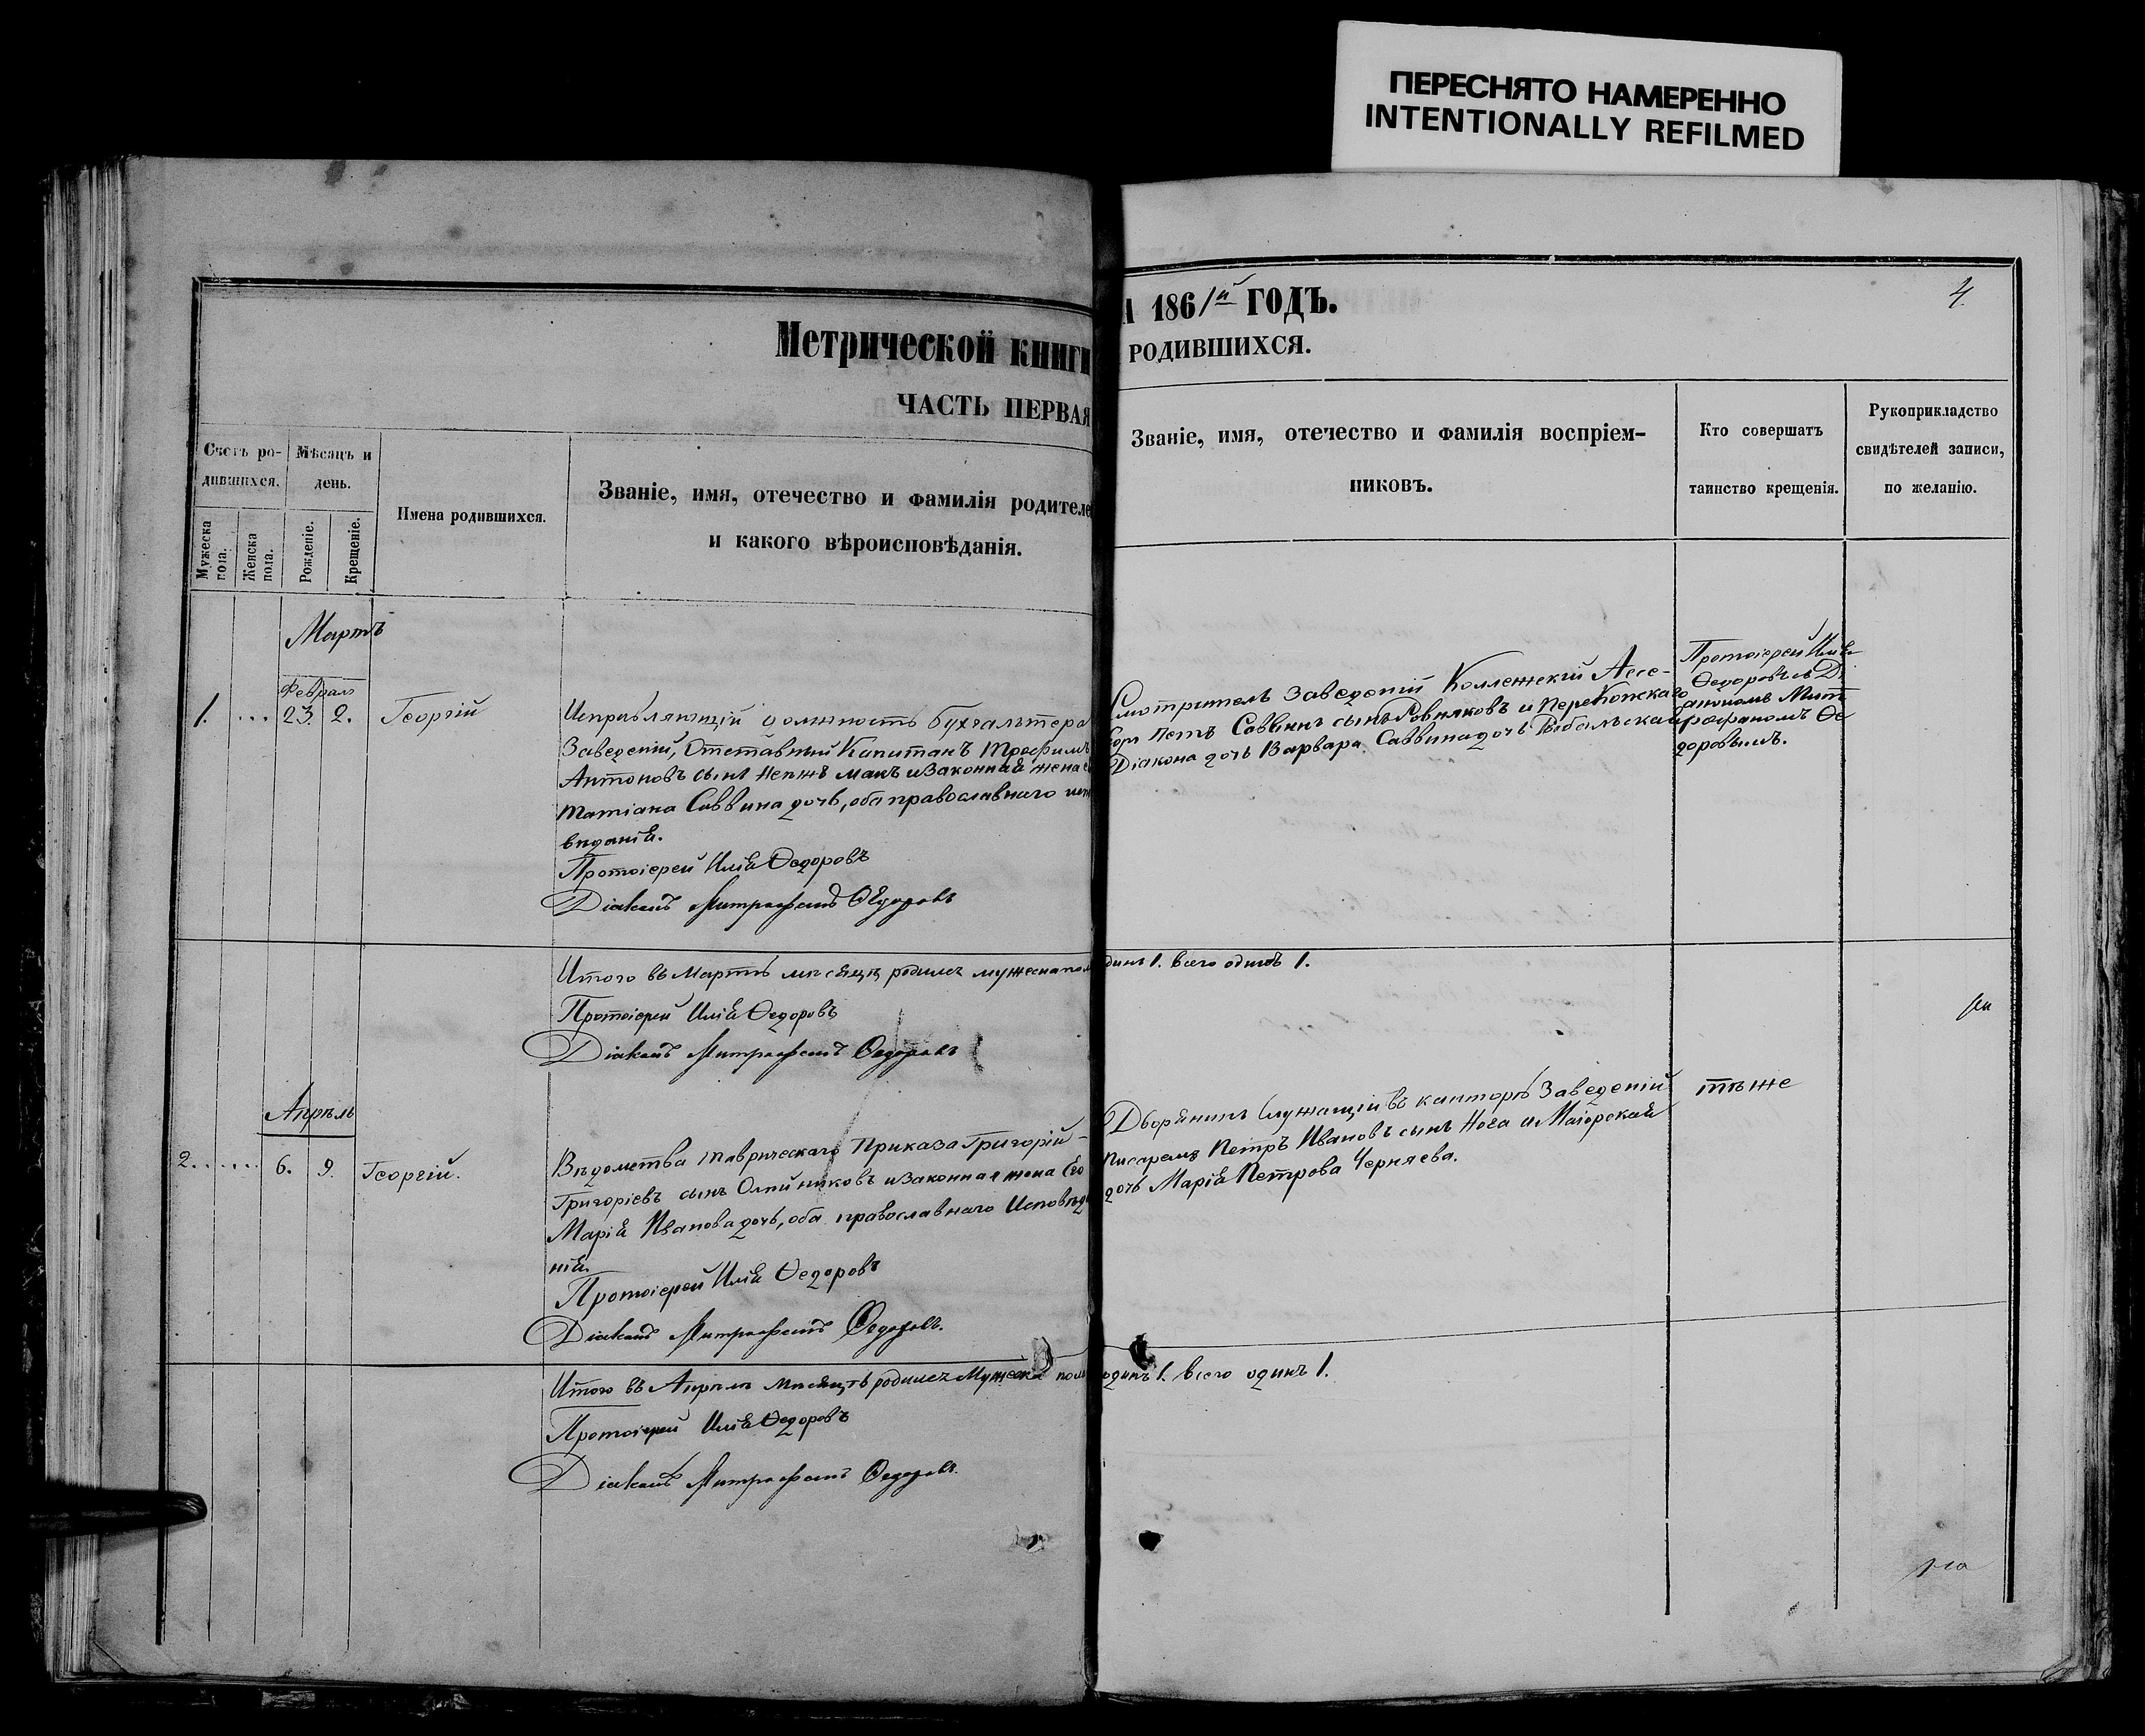 ПЕРЕСНЯТО НАМЕРЕННО
INTENTIONALLY REFILMED
Метрической книги
ЧАСТЬ ПЕРВАЯ
А 186/1й ГОДЪ.
РОДИВШИХСЯ.
4
Счетъ ро-
дившихся.
Мужеска пола.
Женска пола.
Мѣсяцъ и
день.
Рожденіе.
Крещеніе.
Имена родившихся.
Званіе, имя, отечество и фамилія родителе
и какого вѣроисповѣданія.
Званіе, имя, отечество и фамилія воспріем-
никовъ.
Кто совершатъ
таинство крещенія.
Рукоприкладство
свидѣтелей записи,
по желанію.
Мартъ
Феврал
1. ... 23. 2. Георгій
Исправляющій должность бухгалтера
Заведеній, Отставный Капитанъ Трофимъ
Антоновъ сынъ и Законная жена е
Татіана Саввина дочь, оба православнаго исп
вѣданія.
Протоіерей Илія Ѳедоровъ
Діаконъ Митрофанъ Ѳедоровъ
Смотритель Заведеній Коллежскій Ассе-
соръ Петъ Саввинъ сынъ Ровняковъ и Перекопскаго
Діакона дочь Варвара Саввина дочь Рыбальская
Протоіерей Илія
Ѳедоровъ съ Ді
акономъ Мит
рофаномъ Ѳе
доровымъ.
Итого въ Мартѣ мѣсяцѣ родилсь мужеска пол
динъ 1. всего одинъ 1.
Протоіерей Илія Ѳедоровъ
Діаконъ Митрофанъ Ѳедоровъ
Апрѣль
2...... 6. 9. Георгій.
Вѣдомства Таврическаго Приказа Григорій
Григоріевъ сынъ Олпйниковъ и Законная жена Его
Марія Иванова дочь, оба православнаго Исповѣда
нія.
Протоіерей Илія Ѳедоровъ
Діаконъ Митрофанъ Ѳедоровъ.
Дворянинъ Служащій въ канторѣ Заведеній
писаремъ Петръ Ивановъ сынъ Нога и Маіорская
дочь Марія Петрова Черняева.
тѣже
Итого въ Апрѣлѣ мѣсяцѣ родилсь Мужеска пола
одинъ 1. всего одинъ 1.
Протоіерей Илія Ѳедоровъ
Діаконъ Митрофанъ Ѳедоровъ.